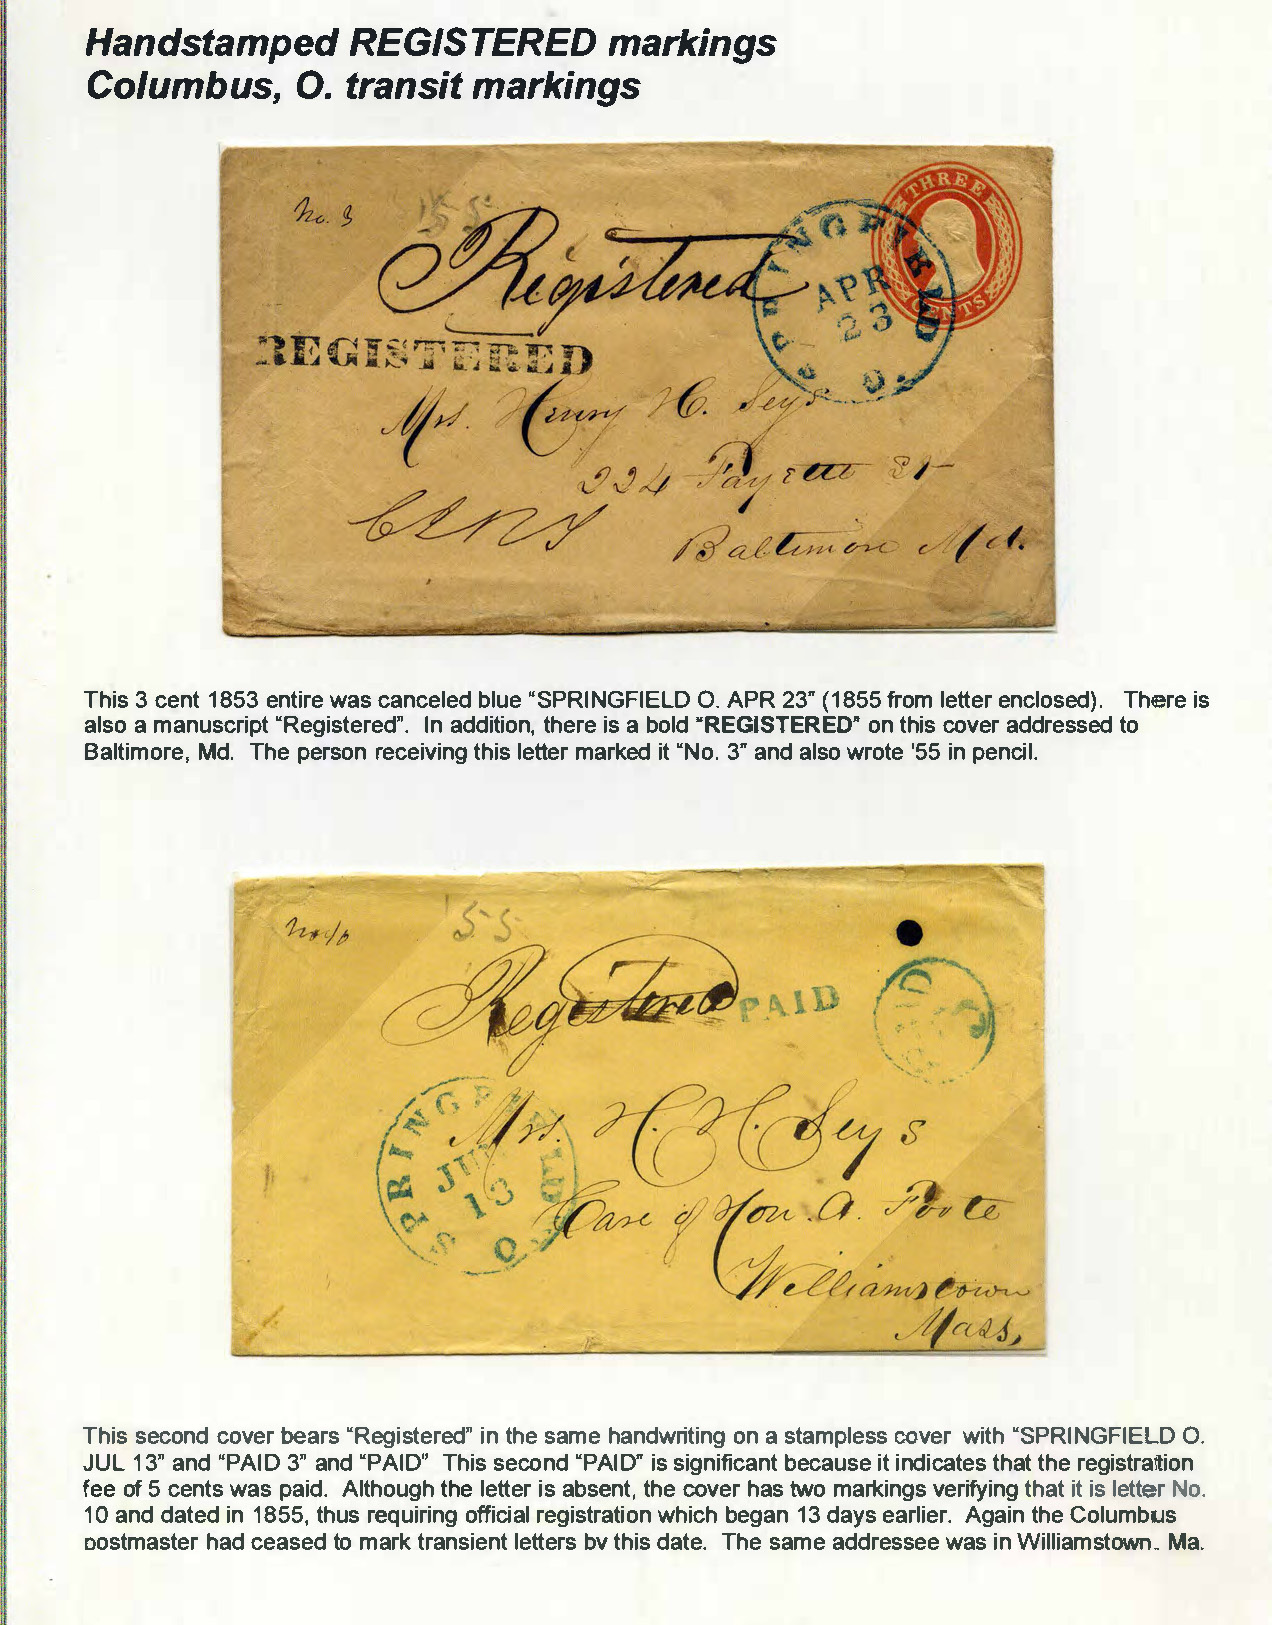 Handstamped REGISTERED markings
Columbus, O. transit markings
No. 3
'55
Registered
THREE
CENTS
SPRINGFIELD O.
APR
23
REGISTERED
Mrs. Henry H. Seys
224 Fayette St
Baltimore Md.
This 3 cent 1853 entire was canceled blue "SPRINGFIELD O. APR 23" (1855 from letter enclosed). There is
also a manuscript "Registered". In addition, there is a bold "REGISTERED" on this cover addressed to
Baltimore, Md. The person receiving this letter marked it "No. 3" and also wrote '55 in pencil.
No 10
'55
Registered
PAID
PAID
3
SPRINGFIELD O.
JUL
13
Mrs. H. H. Seys
Care of Hon. A. Foote
Williamstown
Mass,
This second cover bears "Registered" in the same handwriting on a stampless cover with "SPRINGFIELD O.
JUL 13" and "PAID 3" and "PAID" This second "PAID" is significant because it indicates that the registration
fee of 5 cents was paid. Although the letter is absent, the cover has two markings verifying that it is letter No.
10 and dated in 1855, thus requiring official registration which began 13 days earlier. Again the Columbus
postmaster had ceased to mark transient letters by this date. The same addressee was in Williamstown. Ma.